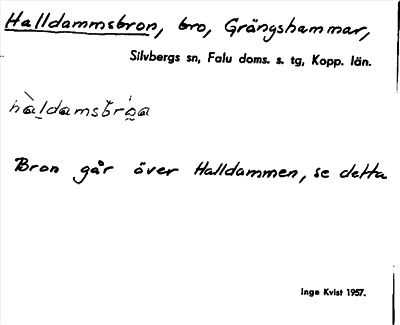 Halldammsbron, bro, Grängshammar,
Silvbergs sn, Falu doms. s. tg, Kopp. län.
hàldamsbróa
Bron går över Halldammen, se detta
Inga Kvist 1957.